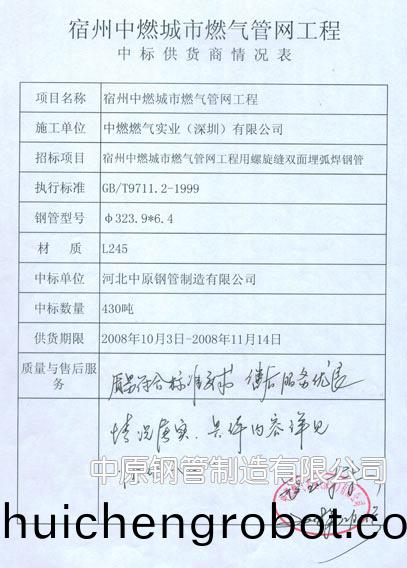 宿州中燃城市燃气管网工程
中标供货商情况表
项目名称 宿州中燃城市燃气管网工程
施工单位 中燃燃气实业（深圳）有限公司
招标项目 宿州中燃城市燃气管网工程用螺旋缝双面埋弧焊钢管
执行标准 GB/T9711.2-1999
钢管型号 φ323.9*6.4
材 质 L245
中标单位 河北中原钢管制造有限公司
中标数量 430吨
供货期限 2008年10月3日-2008年11月14日
质量与售后服
务
质量符合标准要求 售后服务优良
情况真实，具体内容详见
中原钢管制造有限公司
huichengrobot.co